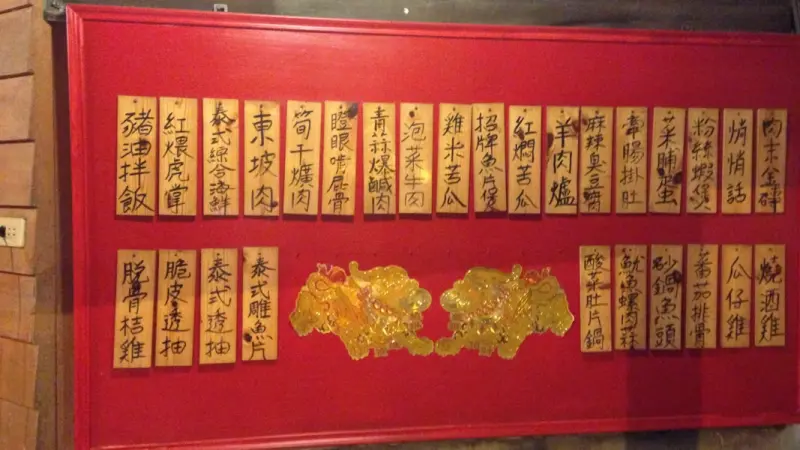 肉末金磚
悄悄話
粉絲蝦煲
菜脯蛋
牽腸掛肚
麻辣臭豆腐
羊肉爐
紅燜苦瓜
招牌魚片煲
雞米苦瓜
泡菜牛肉
青蒜爆鹹肉
瞪眼啃屁骨
筍干爌肉
東坡肉
泰式綜合海鮮
紅煨虎掌
豬油拌飯
燒酒雞
瓜仔雞
蕃茄排骨
砂鍋魚頭
魷魚螺肉蒜
酸菜肚片鍋
泰式雕魚片
泰式透抽
脆皮透抽
脫骨桔雞